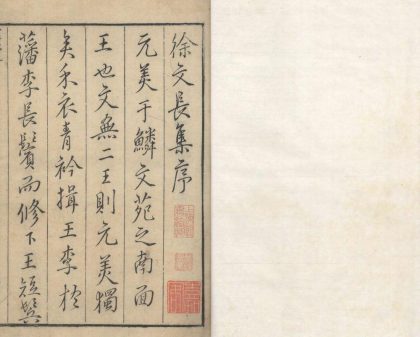 徐文長集序
元美于鱗文苑之南面
王也文無二王則元美獨
矣禾衣青衿揖王李於
藩李長鬢而修下王短鬢